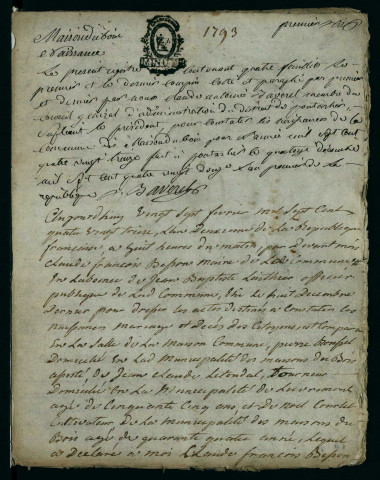 premier
1793
Maisons du bois
Naissance
Le present registre contenant quatre feuilles le
premier et le dernier compris cotté et paraphé par premier
et dernier par nous Claude antoine Baverel membre du
Conseil général d'administration du district de pontarlier,
suppleant le président pour constater les naissances de la
commune des Maisons du bois pour l'année mil sept cent
quatre vingt treize fait à pontarlier le quatorze décembre
mil sept cent quatre vingt douze l'an premier de la
republique
Baverel
Aujourdhuy vingt sept fevrier mil sept cent
quatre vingt treize, L'an Deuxieme de la Republique
francaise, a huit heures du matin, par Devant moi
Claude françois Besson maire de La Commune
En Labsence de Jean Baptiste officier
publique de Lad Commune, Elu Le huit Decembre
Dernier pour Dresser les actes destinés a Constater les
naissances mariage et Décés des Citoyens est Comparu
En La Salle de La Maison Commune, pierre
Domicilié En Lad Municipalité des maisons du Bois
assisté de Jean Claude tourneur
Domicilié En La Municipalité de
agé de Cinquante Cinq ans, et De Noel
Cultivateur De La municipalité des maisons du
Bois agé de quarante quatre année, Lequel
a Déclaré a moi Claude françois Besson